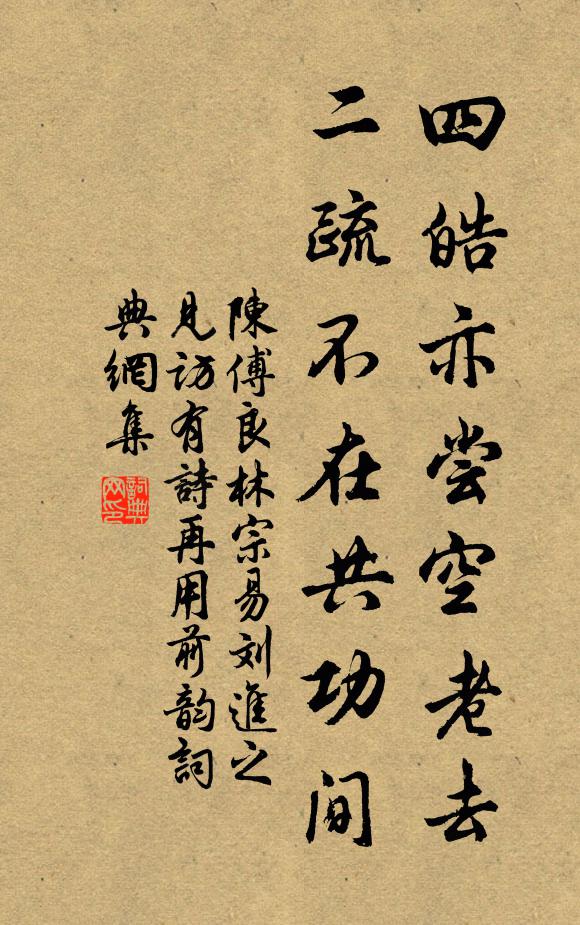 四皓亦尝空老去
二疏不在共功间
陳傅良林宗易刘進之
見訪有詩再用前韵詞
典網集
詞典网印